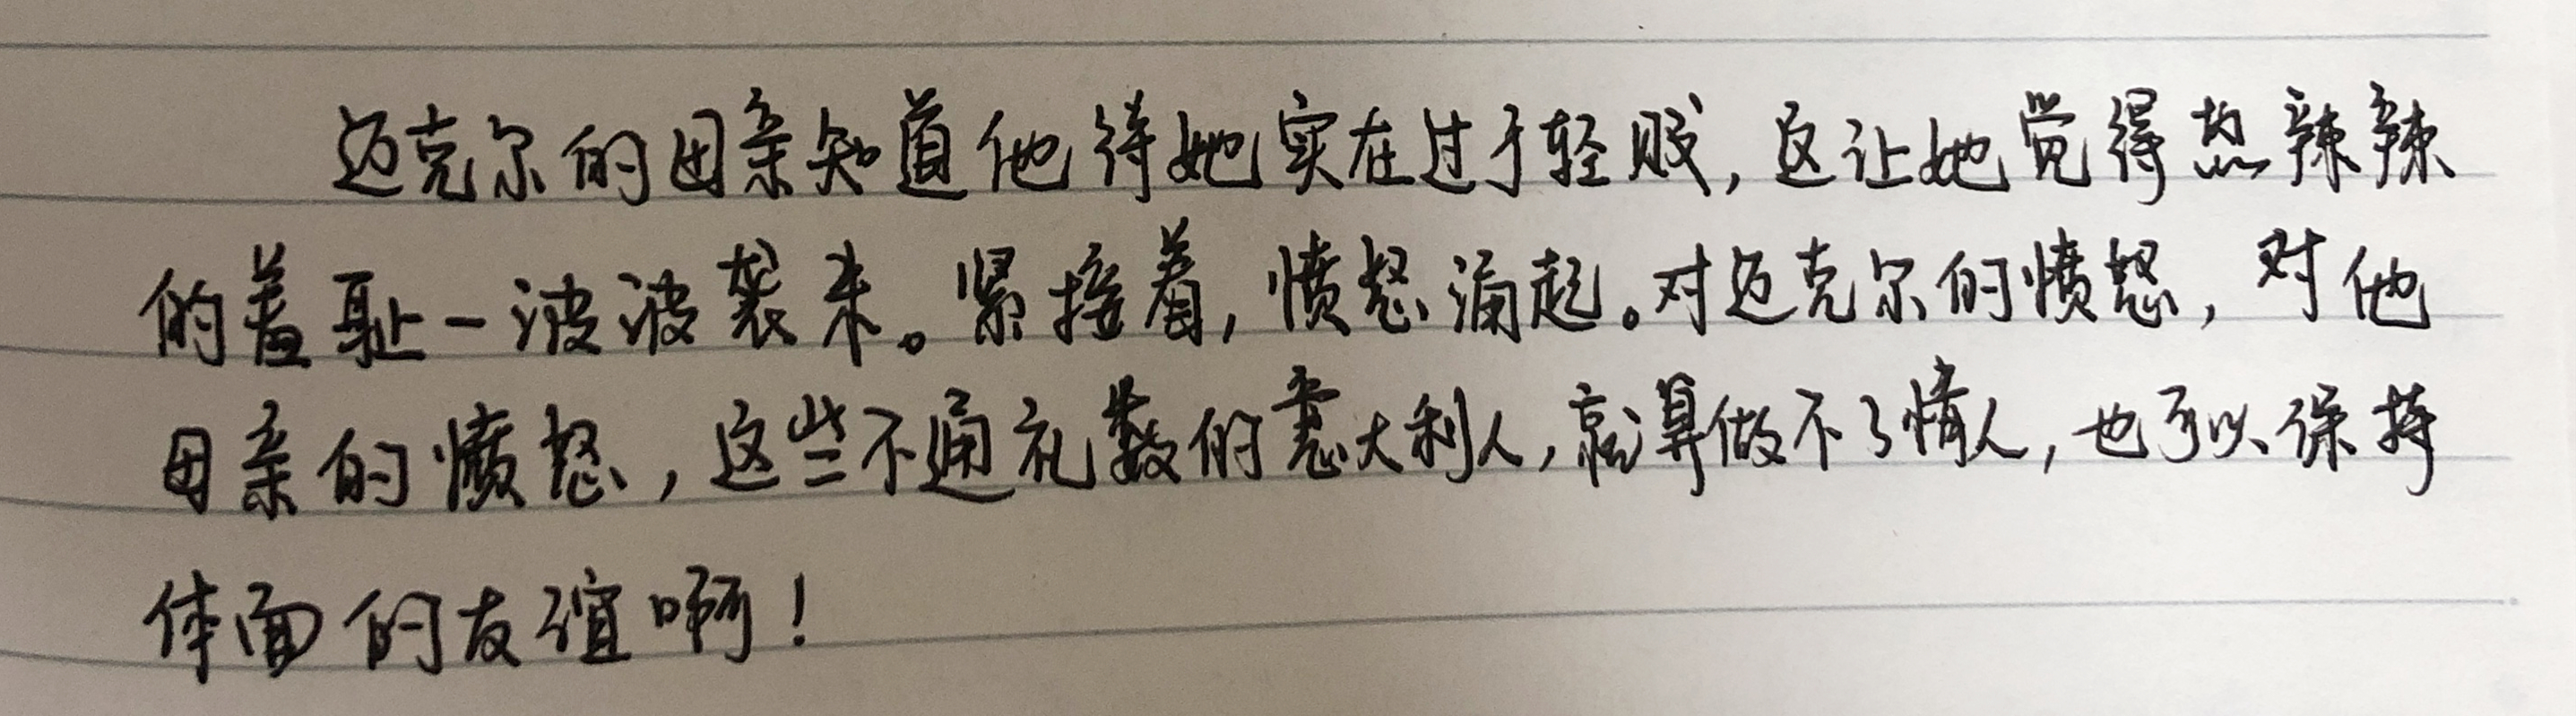 迈克尔的母亲知道他待她实在过于轻贱，这让她觉得热辣辣
的羞耻一波波袭来。紧接着，愤怒涌起。对迈克尔的愤怒，对他
母亲的愤怒，这些不通礼数的意大利人，就算做不了情人，也可以保持
体面的友谊啊！